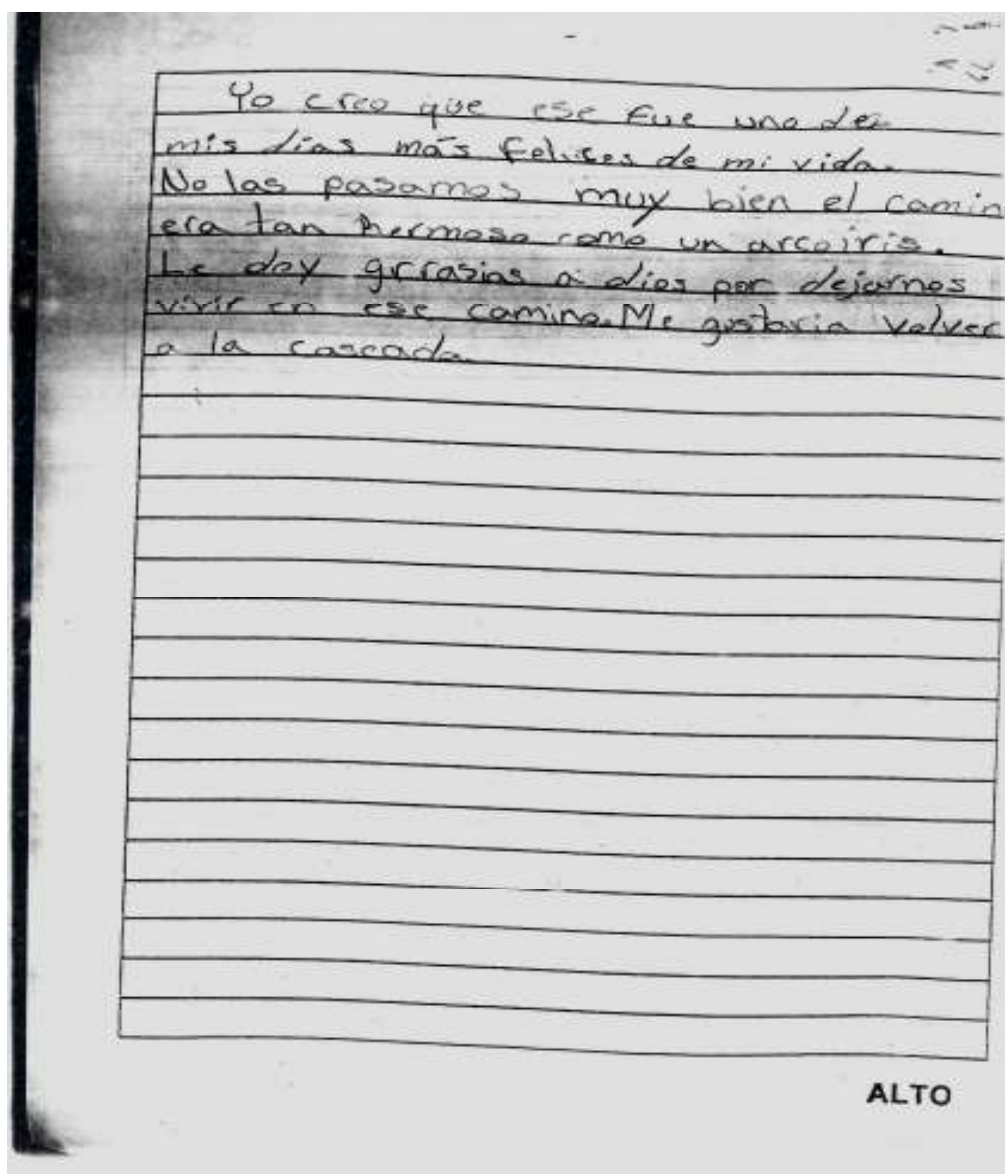 Yo creo que ese fue uno de
mis días más felises de mi vida.
No las pasamos muy bien el camin
era tan hermoso como un arcoiris.
Le doy grrasias a dios por dejarnos
vivir en ese camino. Me gustaria volver
a la cascada
ALTO